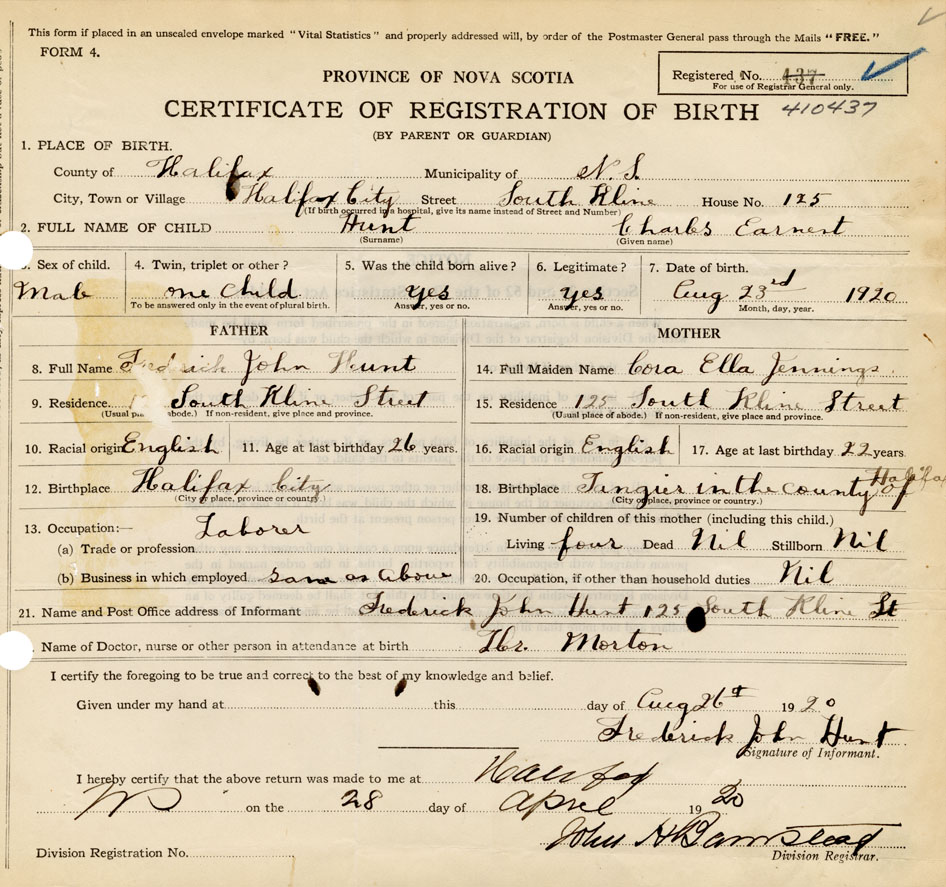 This form if placed in an unsealed envelope marked "Vital Statistics" and properly addressed will, by order of the Postmaster General pass through the Mails "FREE."
FORM 4.
PROVINCE OF NOVA SCOTIA
Registered No. 437
For use of Registrar General only.
CERTIFICATE OF REGISTRATION OF BIRTH 410437
(BY PARENT OR GUARDIAN)
1. PLACE OF BIRTH.
County of Halifax Municipality of N. S.
City, Town or Village Halifax City Street South Kline House No. 125
(If birth occurred in a hospital, give its name instead of Street and Number)
2. FULL NAME OF CHILD Hunt Charles Earnest
(Surname) (Given name)
3. Sex of child. 4. Twin, triplet or other? 5. Was the child born alive? 6. Legitimate? 7. Date of birth.
Male one child Yes Yes Aug 23rd 1920
To be answered only in the event of plural birth. Answer, yes or no. Answer, yes or no. Month, day, year.
FATHER MOTHER
8. Full Name Fredrick John Hunt 14. Full Maiden Name Cora Ella Jennings
9. Residence South Kline Street 15. Residence 125 South Kline Street
(Usual place of abode.) If non-resident, give place and province. (Usual place of abode.) If non-resident, give place and province.
10. Racial origin English 11. Age at last birthday 26 years. 16. Racial origin English 17. Age at last birthday 22 years.
12. Birthplace Halifax City 18. Birthplace Tingier in the county of Halifax
(City or place, province or country.) (City or place, province or country.)
13. Occupation:— Laborer 19. Number of children of this mother (including this child.)
(a) Trade or profession Living four Dead Nil Stillborn Nil
(b) Business in which employed same as above 20. Occupation, if other than household duties Nil
21. Name and Post Office address of Informant Frederick John Hunt 125 South Kline St
Name of Doctor, nurse or other person in attendance at birth Morton
I certify the foregoing to be true and correct to the best of my knowledge and belief.
Given under my hand at this day of Aug 26th 1920
Frederick John Hunt
Signature of Informant.
I hereby certify that the above return was made to me at Halifax
on the 28 day of April 1920
John H Barnstead
Division Registrar.
Division Registration No.